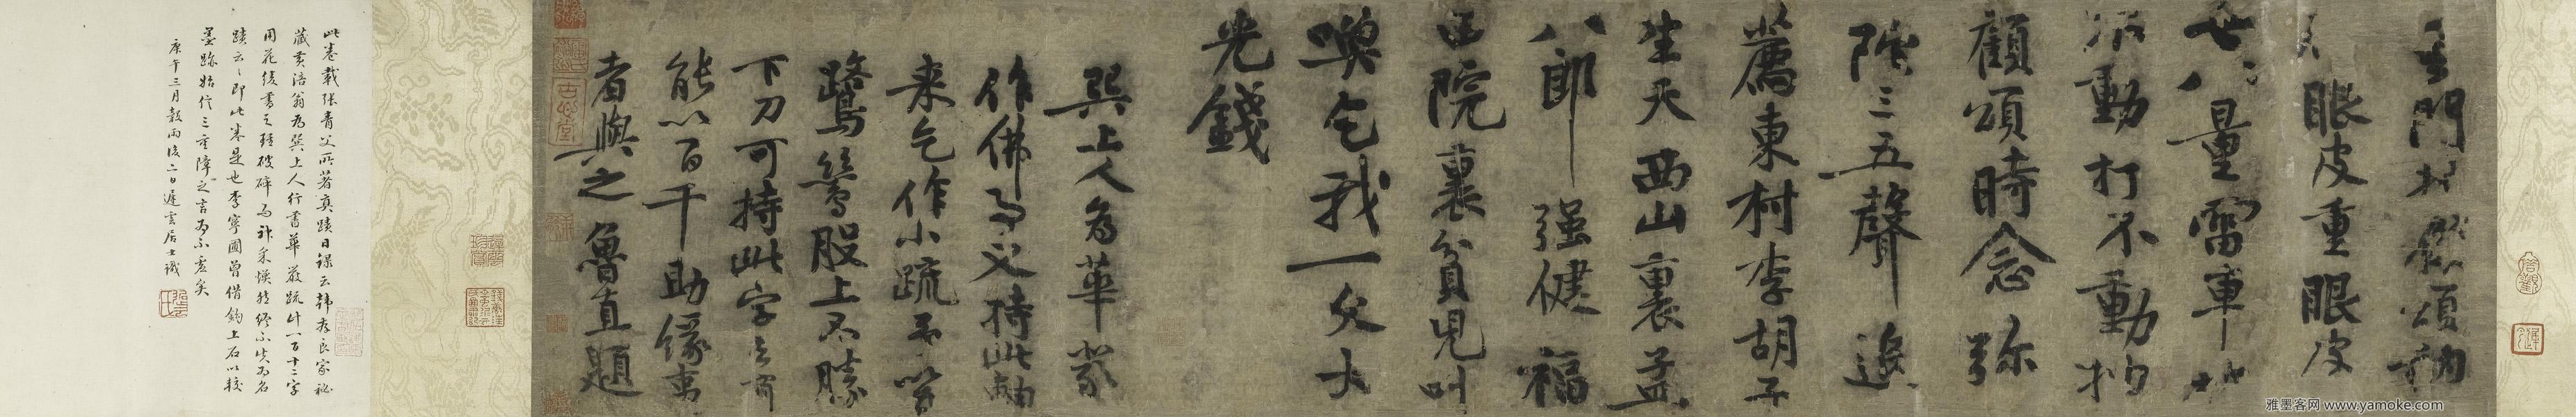 門 頌
眼皮重眼皮
量雷車
動打不動
顧頌時念彌
陁三五聲追
薦東村李胡子
生天西山裏孟
八郎強健福
田院裏貧兒叫
喚乞我一文大
光錢
巽上人為華嚴
作佛事父持此軸
來乞作小疏
鷺鷥股上不勝
下刀可持此字
能以百千助緣事
者與之魯直題
此卷載張青父所著真蹟日錄云韓存良家祕
藏黃涪翁為巽上人行書華嚴疏計一百十二字
用花綾書之雖破碎而神采煥發終不失為名
蹟云云即此卷是也李寧國曾借鉤上石以較
墨跡始信三重障之言為不虛矣
庚午三月穀雨後二日 雲居士識
雅墨客网 www.yamoke.com